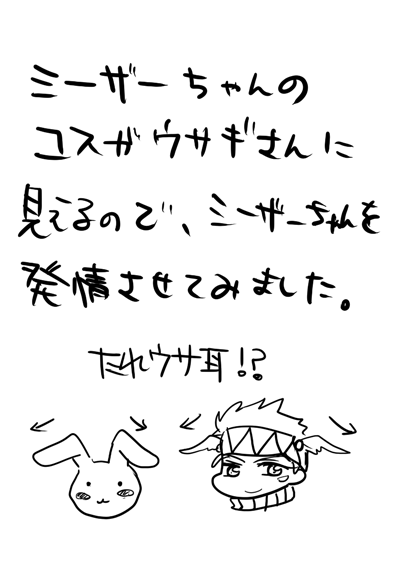 ミーザーちゃんの
コスがウサギさんに
見えるので、ミーザーちゃんを
発情させてみました。
たれウサ耳!?